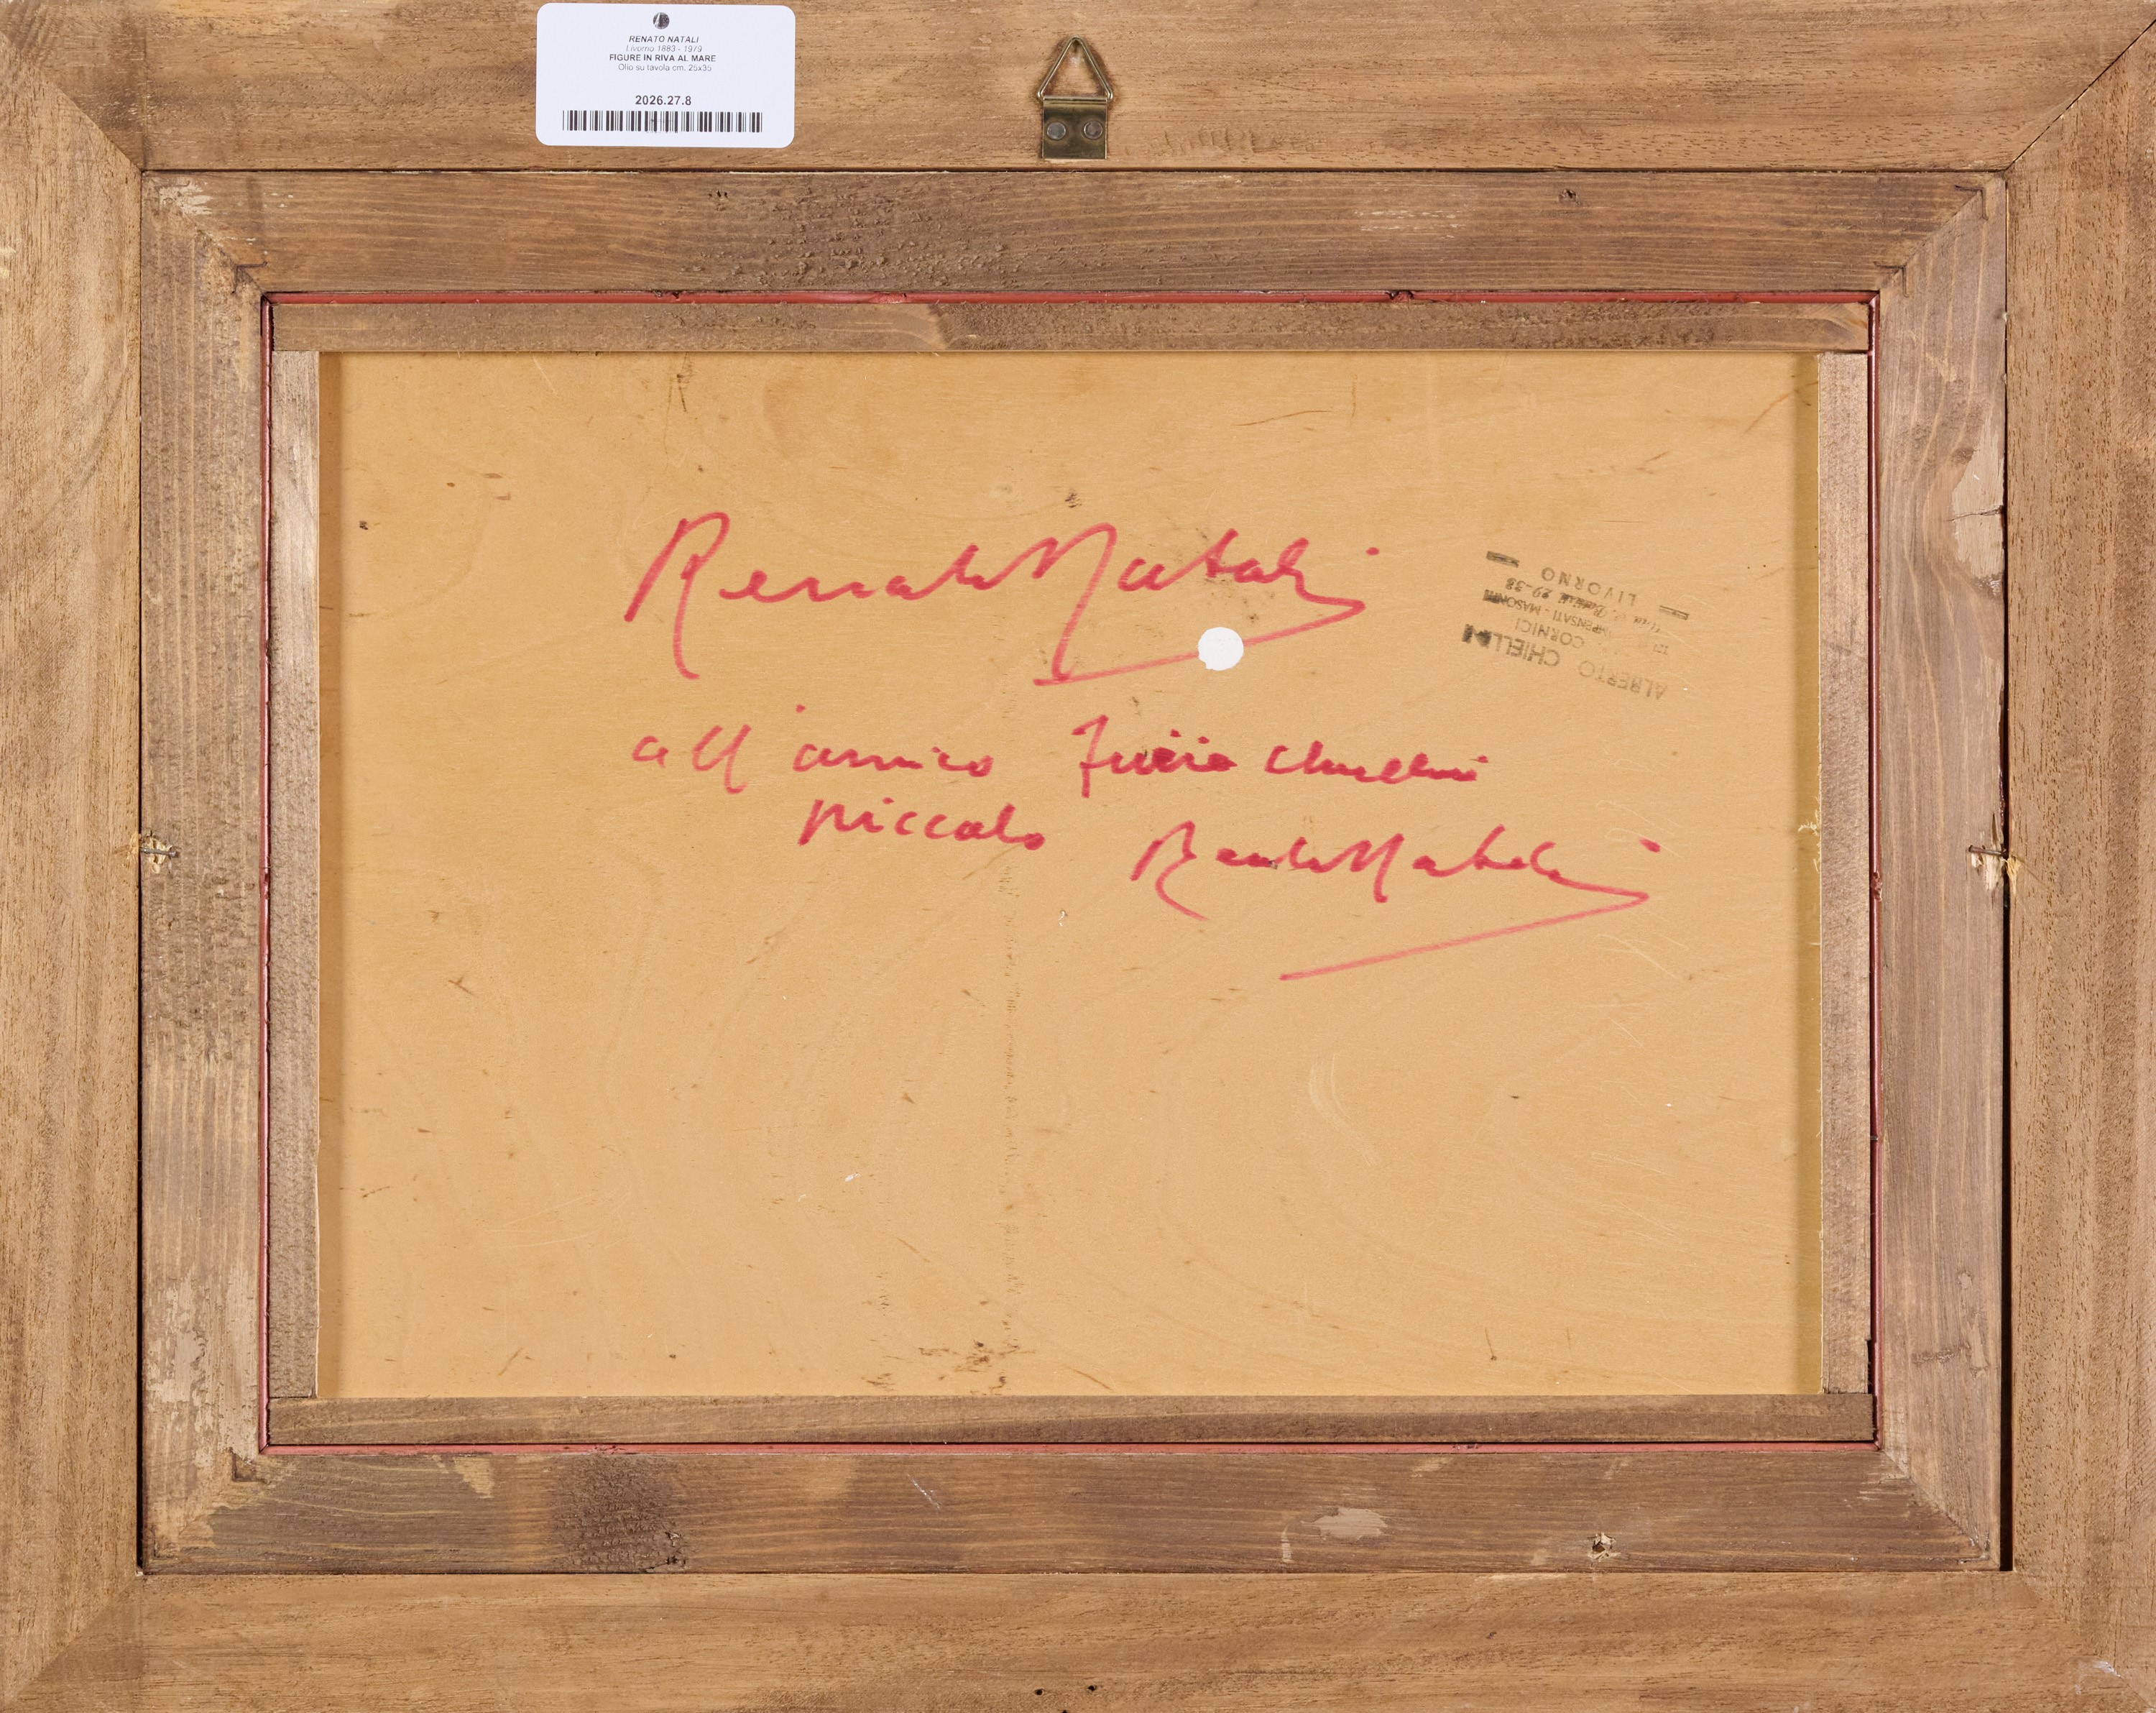 RENATO NATALI
Livorno 1883 - 1979
FIGURE IN RIVA AL MARE
Olio su tavola cm. 25x35
2026.27.8
Renato Natali
all'amico Chiellini
piccolo Renato Natali
ALBERTO CHIELLINI
CORNICI
MASONITE
29-38
LIVORNO